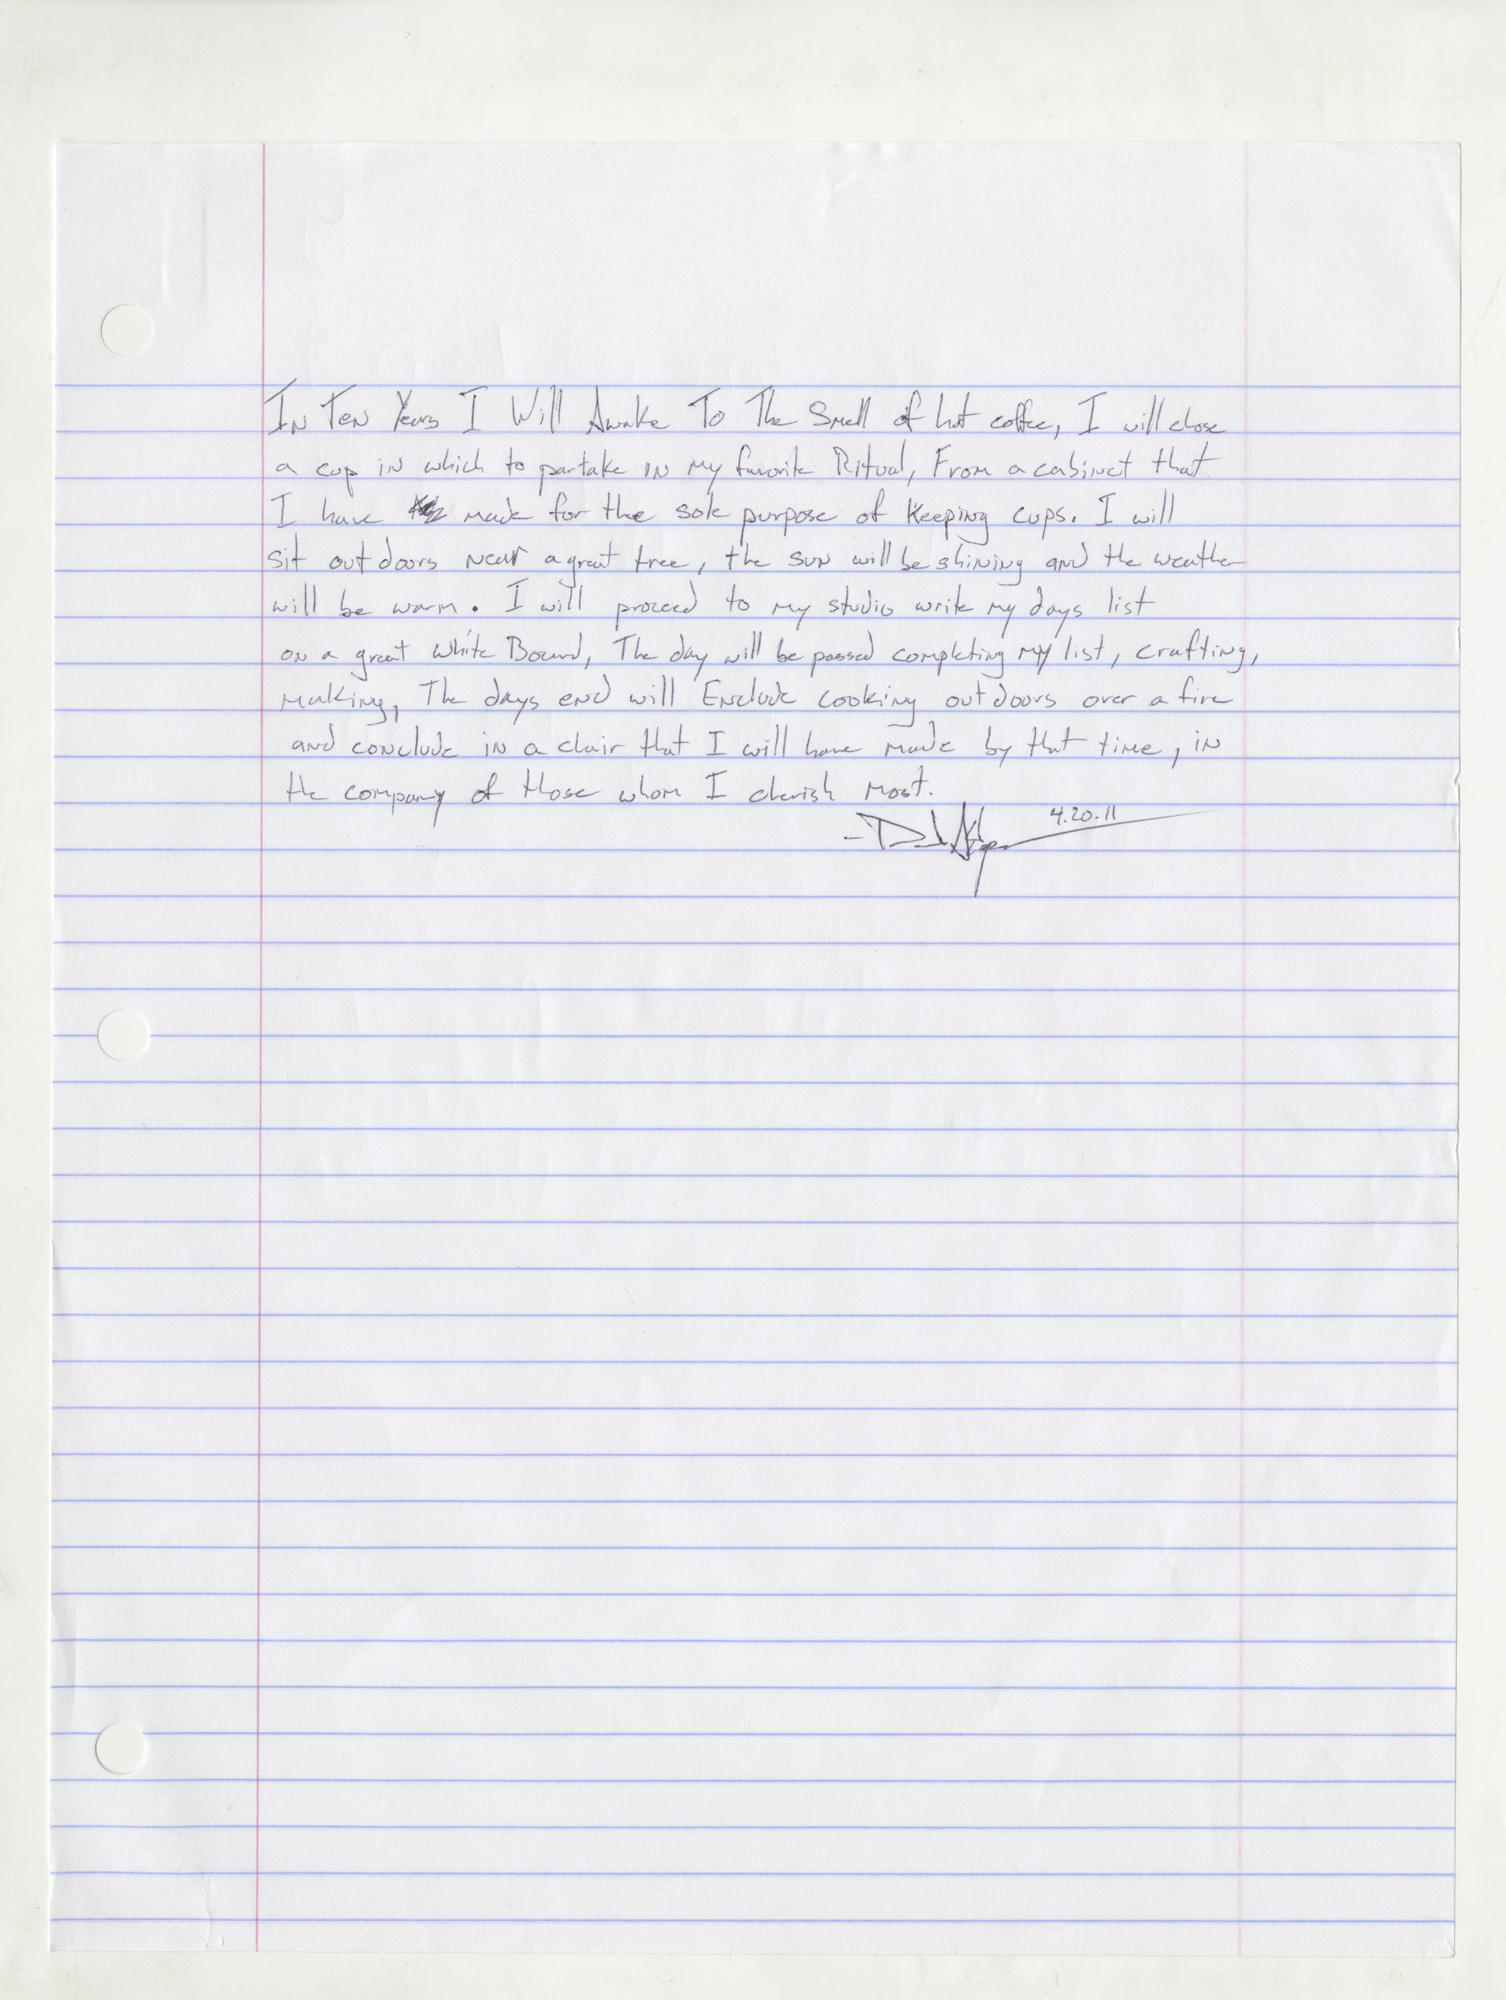 In Ten Years I Will Awake To The Smell of hot coffee, I will chose
a cup in which to partake in my favorite Ritual, From a cabinet that
I have made for the sole purpose of Keeping cups. I will
sit out doors near a great tree, the sun will be shining and the weather
will be warm. I will proceed to my studio write my days list
on a great White Board, The day will be passed completing my list, crafting,
making, The days end will Enclude cooking out doors over a fire
and conclude in a chair that I will have made by that time, in
the company of those whom I cherish most.
4.20.11